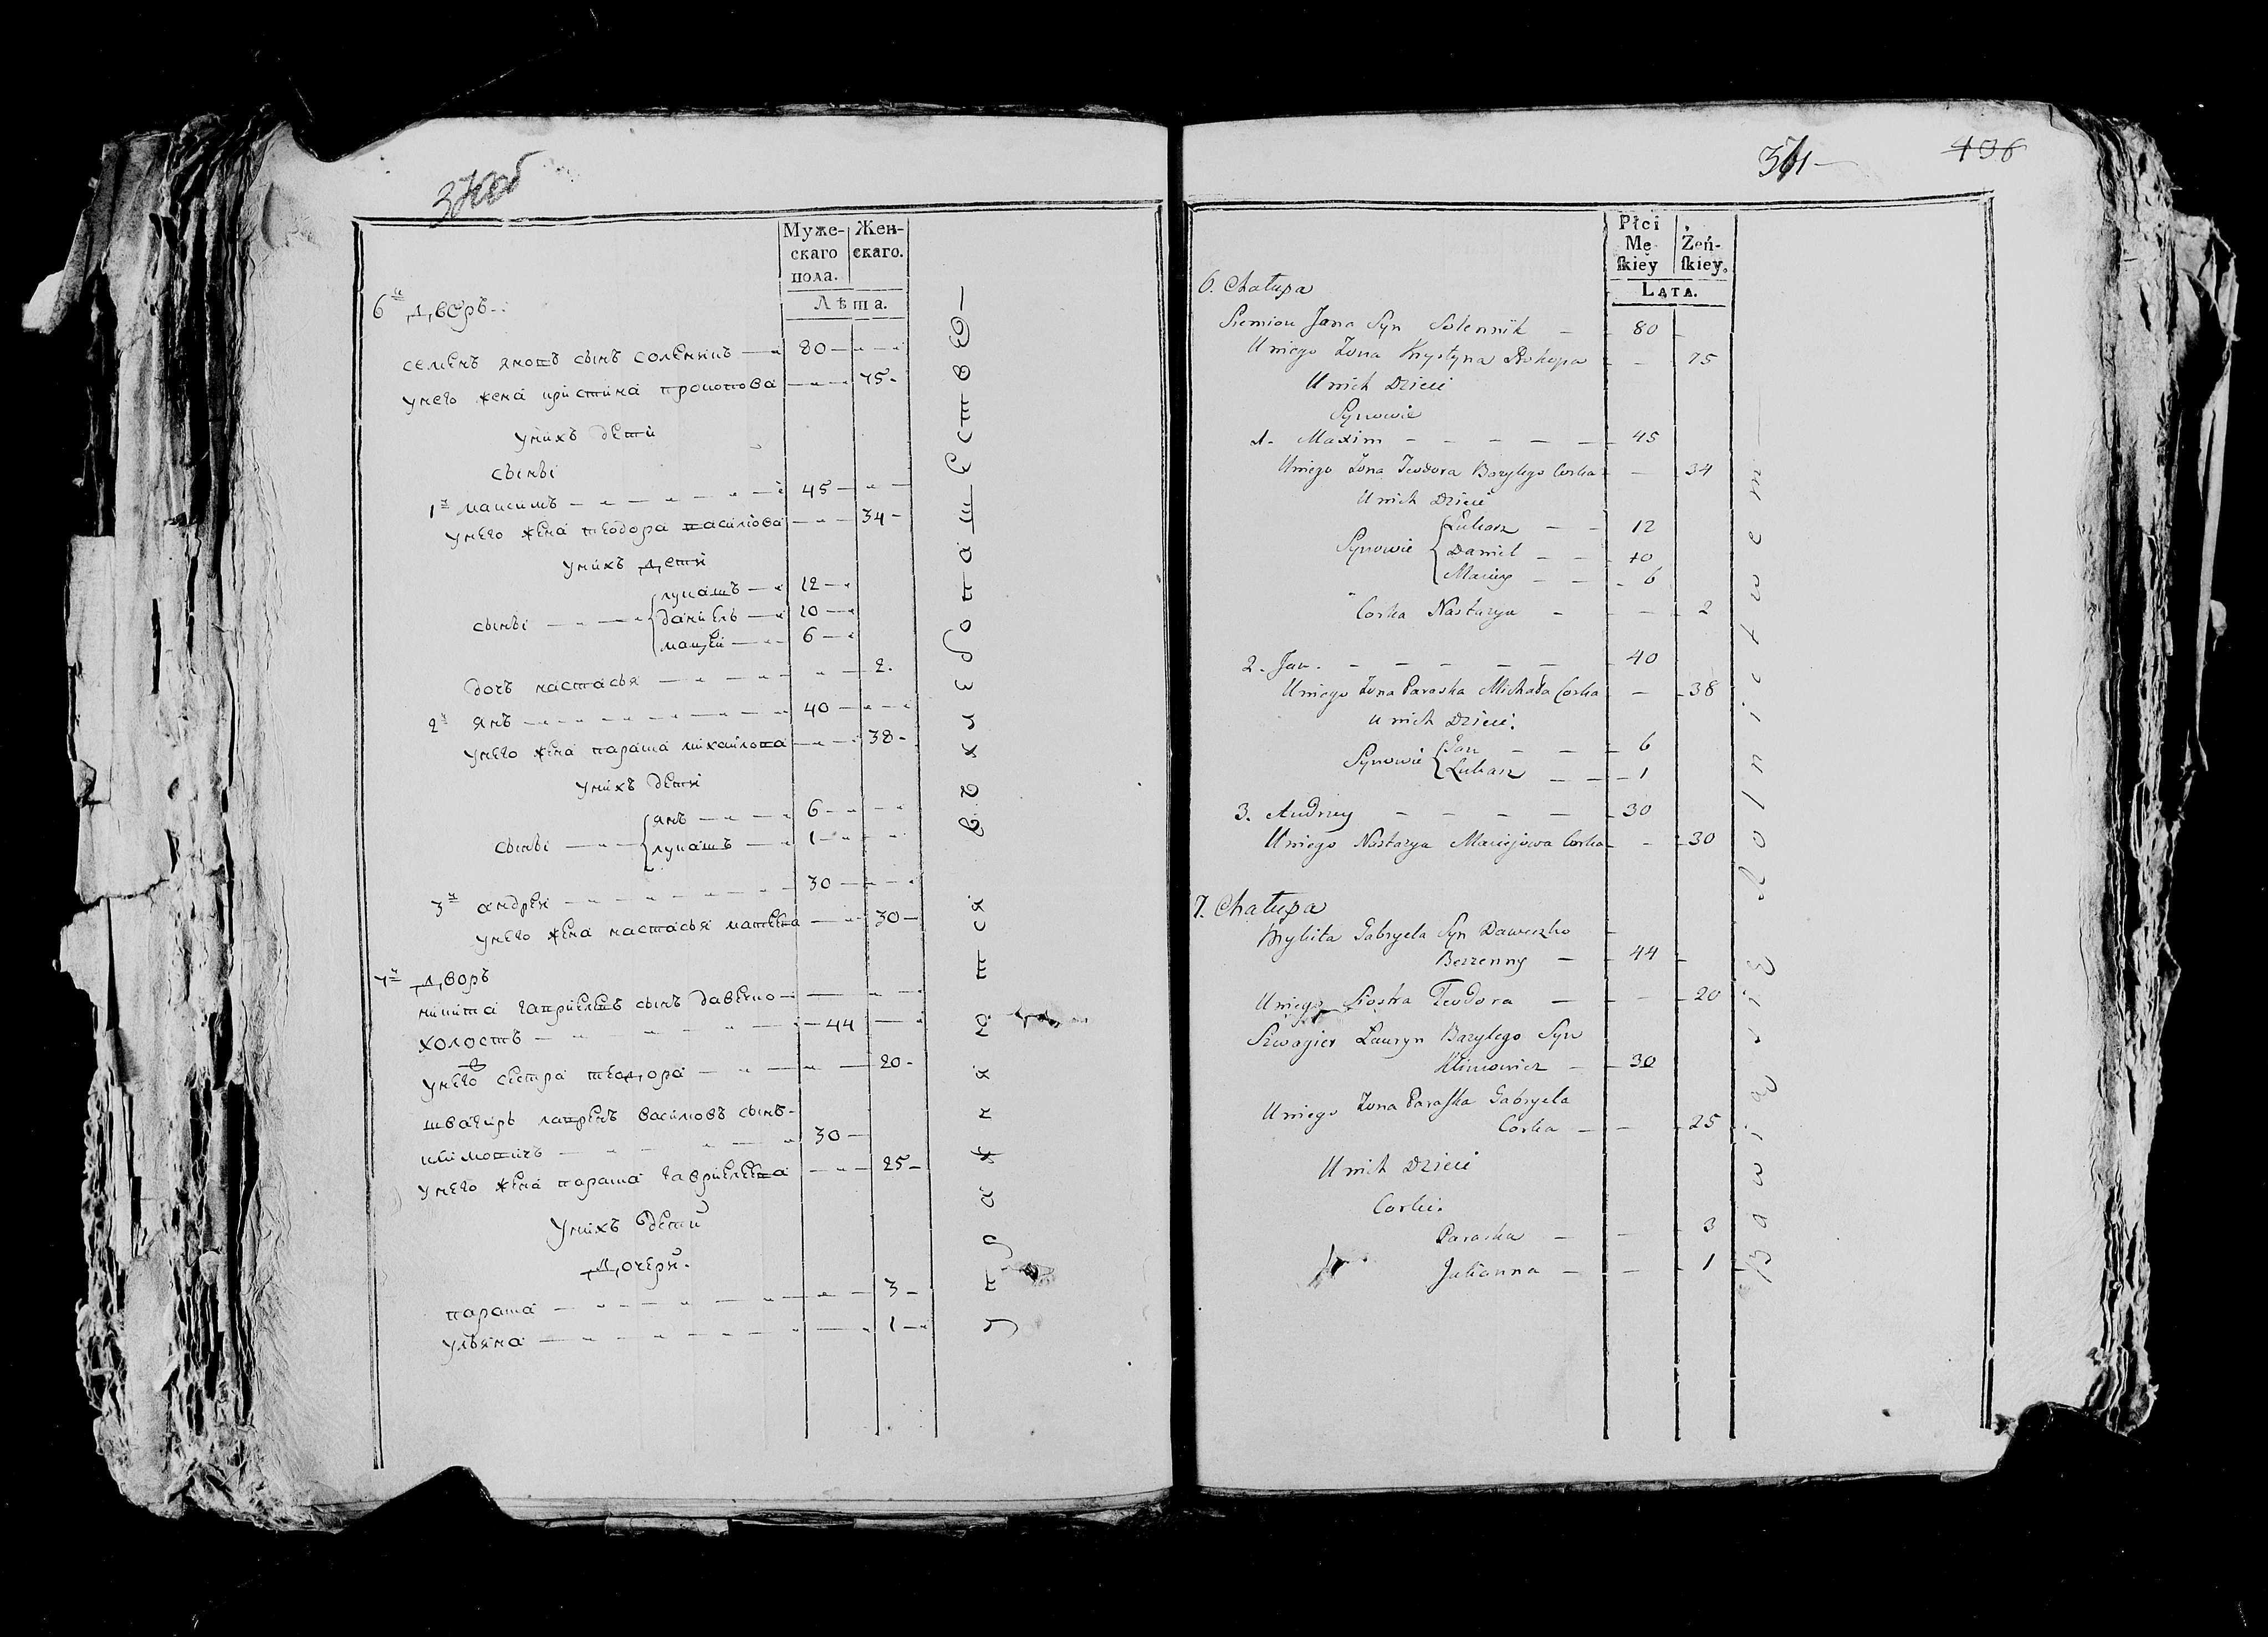 Муже- Жен-
скаго скаго.
пола.
Лѣта.
6й дворъ
семенъ яновъ сынъ соленникъ 80
унего жена кристина прокопова 75
унихъ дети
сыны
1й максимъ 45
унего жена теодора васильова 34
унихъ дети
лукашъ 12
сыны даниель 10
мацѣй 6
дочь настасья 2
2й янъ 40
унего жена параша михаилова 38
унихъ дети
янъ 6
сыны лукашъ 1
3й андрей 30
унего жена настасья матвеева 30
7й дворъ
микита гавриелевъ сынъ давечко
холостъ 44
унего сестра теодора 20
швагиръ лавренъ василювъ сынъ
климовичъ 30
унего жена параша гавриелева 25
унихъ дети
дочери
параша 3
ульяна 1
упражняются
всѣхлебопашествомъ
371
436
Płci Żeń-
Mę- skiey.
skiey
LATA.
6. Chałupa
Siemion Jana Syn Solennik 80
Uniego Żona Krystyna Prokopa 75
Unich Dzieci
Synowie
1. Maxim 45
Uniego Żona Teodora Bazylego Corka 34
Unich Dzieci
Łukasz 12
Synowie Daniel 10
Maciey 6
Corka Nastazya 2
2. Jan 40
Uniego Żona Paraska Michała Corka 38
Unich Dzieci.
Jan 6
Synowie Łukasz 1
3. Andrzey 30
Uniego Nastazya Maciejowa Corka 30
7. Chałupa
Mykita Gabryela Syn Daweczko
Bezzenny 44
Uniego Siostra Teodora 20
Szwagier Lauryn Bazylego Syn
Klimowicz 30
Uniego Żona Paraska Gabryela
Córka 25
Unich Dzieci
Corki.
Paraska 3
Julianna 1
Bawią się Rolnictwem